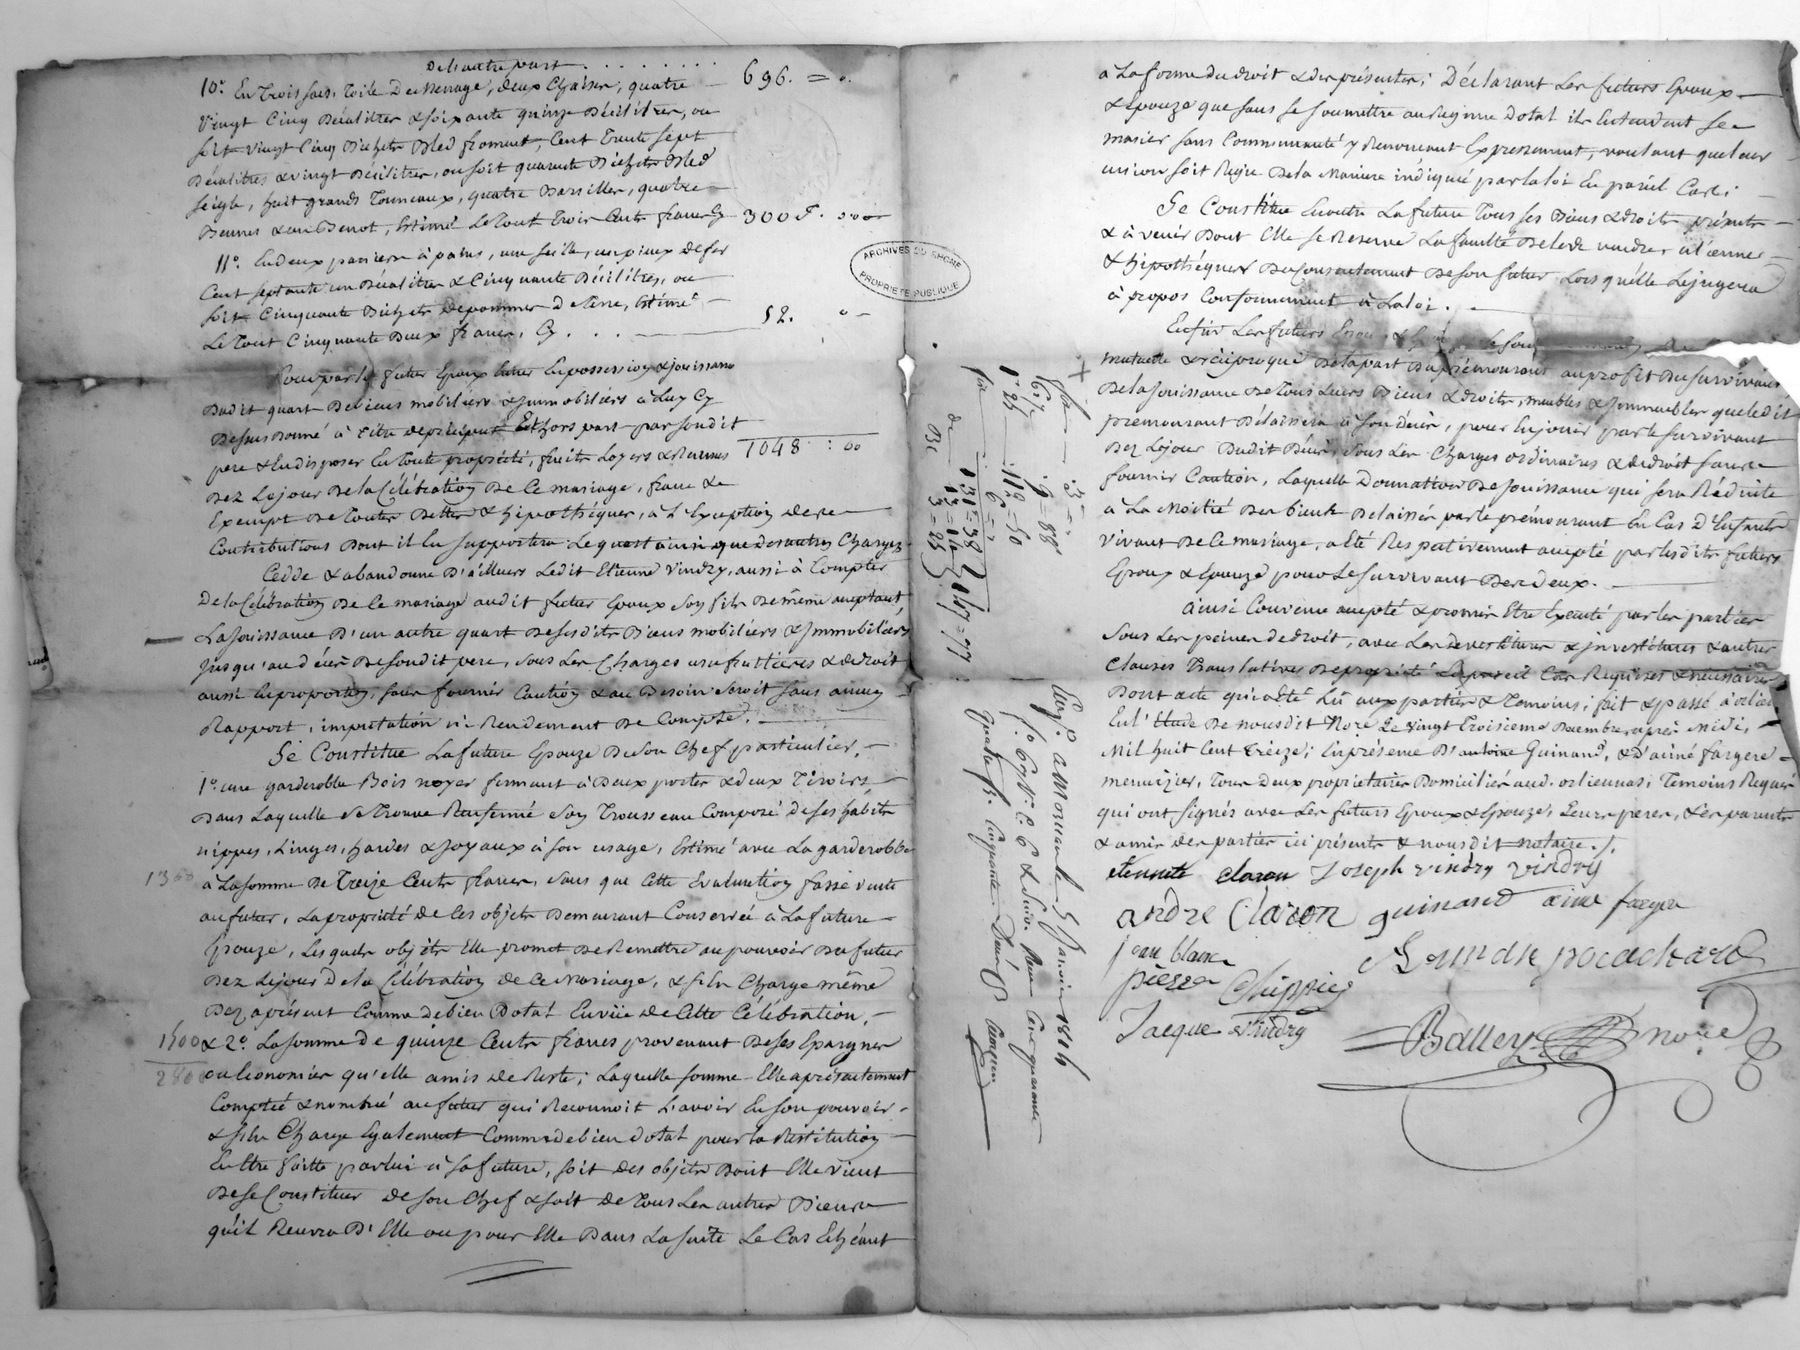 De l'autre part . . . . . . . . 696. = ".
10° En Trois sacs, toile De menage, deux Chaises, quatre
Vingt Cinq Décalitres & soixante quinze Décilitres, ou
soit vingt Cinq Bichets Bled froment, Cent Trente sept
Décalitres & vingt Décilitres, ou soit quarante Bichets Bled
seigle, huit grands Tonneaux, quatre Barilles, quatre
Bennes & un Benot, Estimé Le tout Trois Cents francs Cy 300 f.
11° En deux paniers à pains, une seille, un pieux de fer
Cent septante un Décalitres & Cinquante Décilitres, ou
soit Cinquante Bichets de pommes de terre, Estimé
Le Tout Cinquante Deux francs, Cy . . . 52. "
1048 : 00
Pour par le futur Epoux Entrer En possession & jouissance
Dudit quart De biens mobiliers & immobiliers à Luy Cy
Dessus Donné à titre de préciput Et hors part par sondit
pere & En disposer En Toute propriété, fruits Loyers & Revenus
Dez Le jour De la Célébration De Ce mariage, franc &
Exempt De Toutes Dettes & hipothéques, à L'Exception de
Contributions Dont il En supportera Le quart ainsi que des autres Charges
Cedde & abandonne D'ailleurs Ledit Etienne Vindry, aussi à Compter
De la Célébration De Ce mariage audit futur Epoux Son fils De même acceptant
La jouissance D'un autre quart De sesdits Biens mobiliers & immobiliers
Jusqu'au décès De sondit pere, sous Les Charges usufruitieres & de droit
aussi En proportion, sans fournir Caution & au Besoin Seroit sans aucun
Rapport, imputation ni Rendement De Compte.
Se Constitue La future Epouze De son Chef particulier,
1° une garderobbe Bois noyer fermant à Deux portes & deux Tiroirs
Dans Laquelle se Trouve Renfermé Son Trousseau Composé de ses habits
nippes, Linges, hardes & Joyaux à son usage, Estimé avec La garderobbe
1300
à La somme De Treize Cents francs, Sans que Cette Evaluation fasse vente
au futur, La propriété de Ces objets Demeurant Conservée à La future
Epouze, Lesquels objets Elle promet De Remettre au pouvoir Du futur
Dez Le jour De la Célébration de Ce Mariage, & s'En Charge même
Dez aprésent Comme de bien Dotal En vüe de Cette Célébration,
1500
& 2° La somme de quinze Cents francs provenant De ses Epargnes
280
ou Economies qu'elle a mis de Reste; Laquelle somme Elle a présentement
Comptée & nombrée au futur qui Reconnoit L'avoir En son pouvoir
& s'En Charge Egalement Comme de bien dotal pour la Restitution
En Etre faitte par lui à sa future, soit des objets Dont Elle vient
De se Constituer de son Chef & soit de Tous Les autres Biens
qu'il Recevra D'Elle ou pour Elle Dans La suite Le Cas Echéant
ARCHIVES DU RHONE
PROPRIETE PUBLIQUE
à La forme du droit & des présentes; Déclarant Les futurs Epoux
& Epouze que sans se soumettre au Regime Dotal ils Entendent se
marier sans Communauté y Renoncant Expressement, voulant que leur
union soit Regie De la Maniere indiquée par la loi En pareil Cas;
Se Constitue Encore La future Tous ses Biens & droits présents
& à venir Dont Elle se Reserve La faculté De les vendre aliener
& hipothéquer Du Consentement De son futur Lors qu'elle Le jugera
à propos Conformement à La loi.
Enfin Les futurs Epoux &
mutuelle & réciproque De la part Du prémourant au profit Du survivant
De la Jouissance De Tous Leurs Biens & droits, meubles & immeubles que ledit
premourant Délaissera à son décès, pour En jouir par le survivant
Dez Le jour Dudit Décès, sous Les Charges ordinaires & de droit sans
fournir Caution, Laquelle Donnation De jouissance qui sera Réduite
à La Moitié Des biens Delaissés par le prémourant En Cas d'Enfants
vivant De Ce mariage, a Eté Respectivement accepté par lesdits futurs
Epoux & Epouze pour Le survivant Des deux.
ainsi Convenu accepté & promis Etre Executé par les parties
sous Les peines de droit, avec Les devestitures & investitures & autres
Clauses Translatives De propriété En pareil Cas Requises & necessaires
Dont acte qui a Eté Lû aux parties & Temoins; fait & passé à orlienas
En l'Etude De nousdit Nore Le vingt Troisieme Decembre après Midi,
Mil huit Cent treize; En présence D'antoine Guinand, & d'aimé fargere
menuizier, Tous Deux propriétaires Domiciliés aud. orliennas; Temoins Requis
qui ont signés avec Les futurs Epoux & Epouze, Leurs peres, & les parents
& amis des parties ici présents & nousdit notaire./.
étiennete claron Joseph vindry vindry
andre Claron guinand aime fargere
jean blanc
pierre Chippier
Jacque Vindry
Balley nore
Enr. a Mornant le 5 Janvier 1814